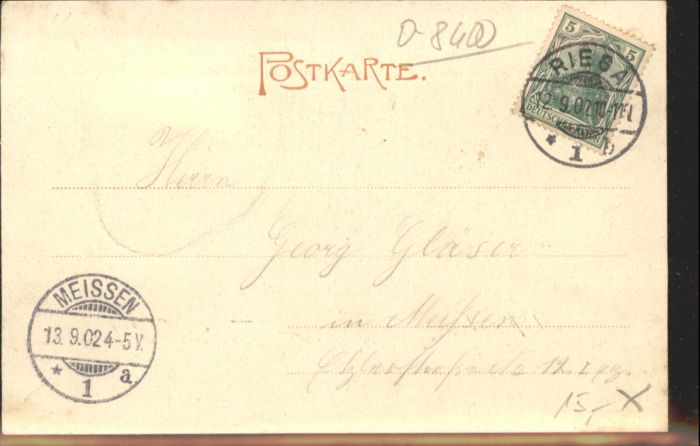 O-8400
POSTKARTE.
5 5
RIESA
12.9.02 10-11
* 1 b
Herrn
Georg Gläser
in Meissen
12
MEISSEN
13.9.02 4-5 V.
* 1 a
15,- X